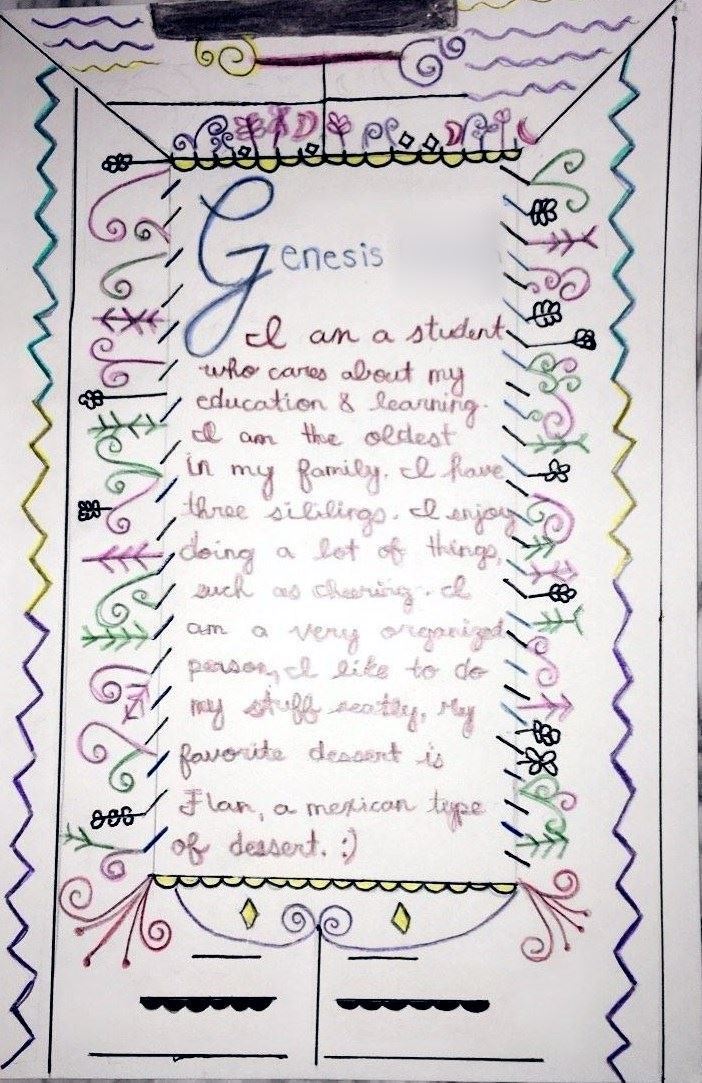 Genesis
I am a student
who cares about my
education & learning.
I am the oldest
in my family. I have
three sililings. I enjoy
doing a lot of things,
such as cheering. I
am a very organized
person, I like to do
my stuff neatly, My
favorite dessert is
Flan, a mexican type
of dessert. :)